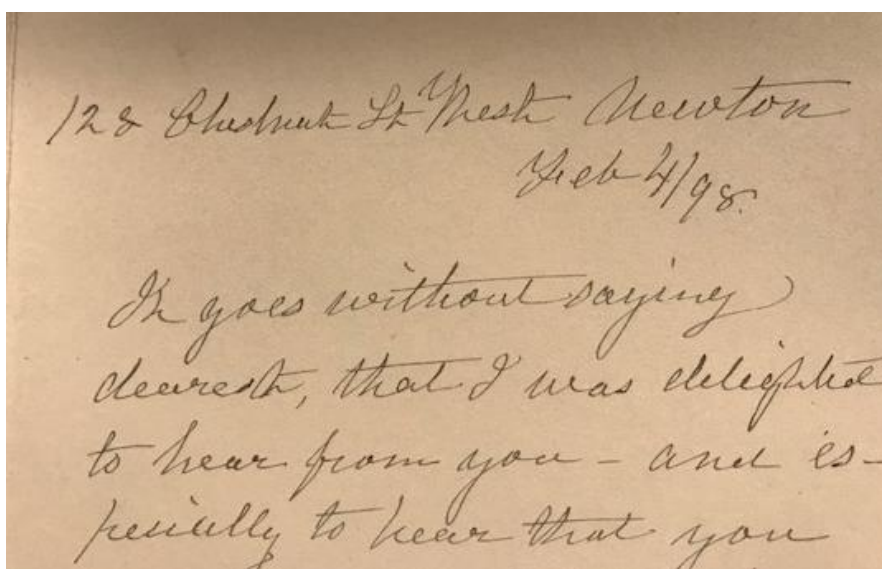 128 Chestnut St West Newton
Feb 4/98.
It goes without saying
dearest, that I was delighted
to hear from you - and es-
pecially to hear that you